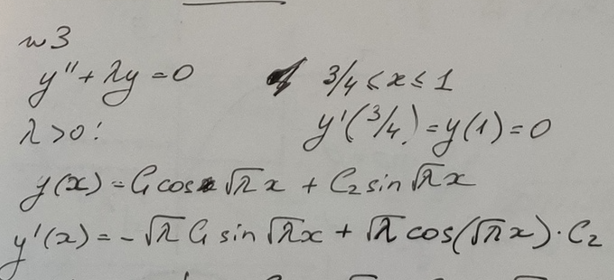 №3
y'' + λy = 0    3/4 ≤ x ≤ 1
λ > 0:    y'(3/4) = y(1) = 0
y(x) = C₁ cos √λ x + C₂ sin √λ x
y'(x) = -√λ C₁ sin √λ x + √λ cos(√λ x) · C₂